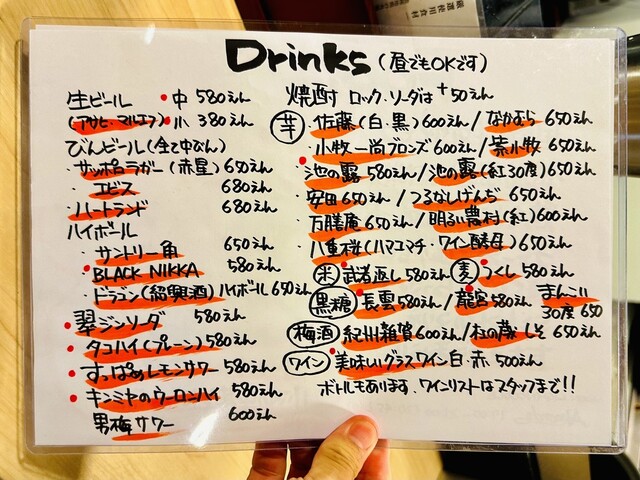 Drinks (昼でもOKです)
生ビール ・中 580えん
(アサヒ・マルエフ) 小 380えん
びんビール (全て中びん)
・サッポロラガー (赤星) 650えん
・エビス 680えん
・ハートランド 680えん
ハイボール
・サントリー角 650えん
・BLACK NIKKA 580えん
・ドラゴン(紹興酒)ハイボール 650えん
・翠ジンソーダ 580えん
・タコハイ(プレーン) 580えん
・すっぱめレモンサワー 580えん
・キンミヤのウーロンハイ 580えん
男梅サワー 600えん
焼酎 ロック・ソーダは +50えん
芋 ・佐藤 (白・黒) 600えん / なかむら 650えん
・小牧 一尚ブロンズ 600えん / 茶小牧 650えん
・池の露 580えん / 池の露(紅30度) 650えん
・安田 650えん / つるなしげんぢ 650えん
・万膳庵 650えん / 明るい農村(紅) 600えん
・八重桜 (ハマコマチ・ワイン酵母) 650えん
米 武者返し 580えん 麦 つくし 580えん
黒糖 長雲 580えん / 龍宮 580えん まんこい 30度 650
梅酒 紀州雑賀 600えん / 杜の蔵 しそ 650えん
ワイン 美味しいグラスワイン 白・赤 500えん
ボトルもあります。ワインリストはスタッフまで!!